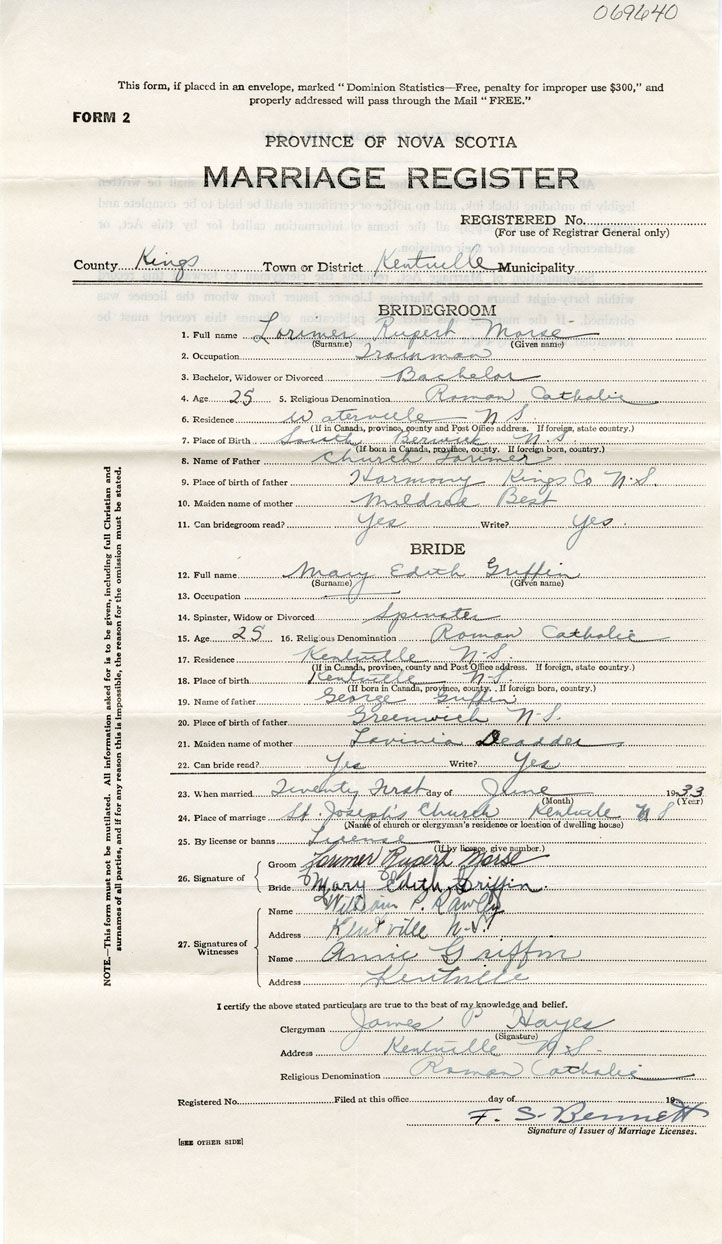 069640
This form, if placed in an envelope, marked "Dominion Statistics—Free, penalty for improper use $300," and
properly addressed will pass through the Mail "FREE."
FORM 2
PROVINCE OF NOVA SCOTIA
MARRIAGE REGISTER
REGISTERED No.
(For use of Registrar General only)
County Kings Town or District Kentville Municipality
BRIDEGROOM
1. Full name Lorimer Rupert Morse
(Surname) (Given name)
2. Occupation Trainman
3. Bachelor, Widower or Divorced Bachelor
4. Age 25 5. Religious Denomination Roman Catholic
6. Residence Waterville N.S.
(If in Canada, province, county and Post Office address. If foreign, state country.)
7. Place of Birth South Berwick N.S.
(If born in Canada, province, county. If foreign born, country.)
8. Name of Father Church Lorimer
9. Place of birth of father Harmony Kings Co N.S.
10. Maiden name of mother Mildred Best
11. Can bridegroom read? Yes Write? Yes.
BRIDE
12. Full name Mary Edith Griffin
(Surname) (Given name)
13. Occupation
14. Spinster, Widow or Divorced Spinster
15. Age 25 16. Religious Denomination Roman Catholic
17. Residence Kentville N-S.
(If in Canada, province, county and Post Office address. If foreign, state country.)
18. Place of birth Kentville N-S.
(If born in Canada, province, county. If foreign born, country.)
19. Name of father George Griffin
20. Place of birth of father Greenwich N-S.
21. Maiden name of mother Lavinia Deadder
22. Can bride read? Yes Write? Yes
23. When married Twenty First day of June 1933
(Month) (Year)
24. Place of marriage St. Joseph's Church Kentville N S
(Name of church or clergyman's residence or location of dwelling house)
25. By license or banns License
(If by licence, give number.)
26. Signature of Groom Lorimer Rupert Morse
Bride Mary Edith Griffin.
27. Signatures of Witnesses
Name William P. Rawley
Address Kentville N-S.
Name Annie Griffin
Address Kentville
I certify the above stated particulars are true to the best of my knowledge and belief.
Clergyman James P Hayes
(Signature)
Address Kentville N-S-
Religious Denomination Roman Catholic
Registered No. Filed at this office day of 19
F. S. Bennett
Signature of Issuer of Marriage Licenses.
[SEE OTHER SIDE]
NOTE.—This form must not be mutilated. All information asked for is to be given, including full Christian and
surnames of all parties, and if for any reason this is impossible, the reason for the omission must be stated.